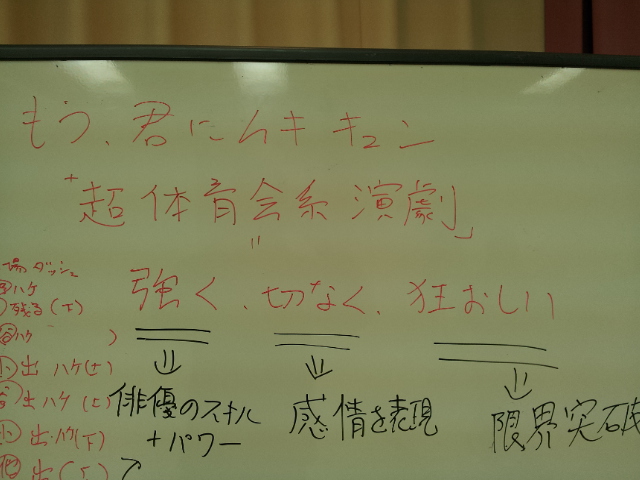 もう、君にムキキュン
+
「超体育会系演劇」
=
強く、切なく、狂おしい
⇓ ⇓ ⇓
俳優のスキル
+パワー
感情を表現
限界突破
場ダッシュ
ハケ
残る(下)
ハケ )
出 ハケ(上)
出ハケ(上)
出ハケ(下)
出(上)